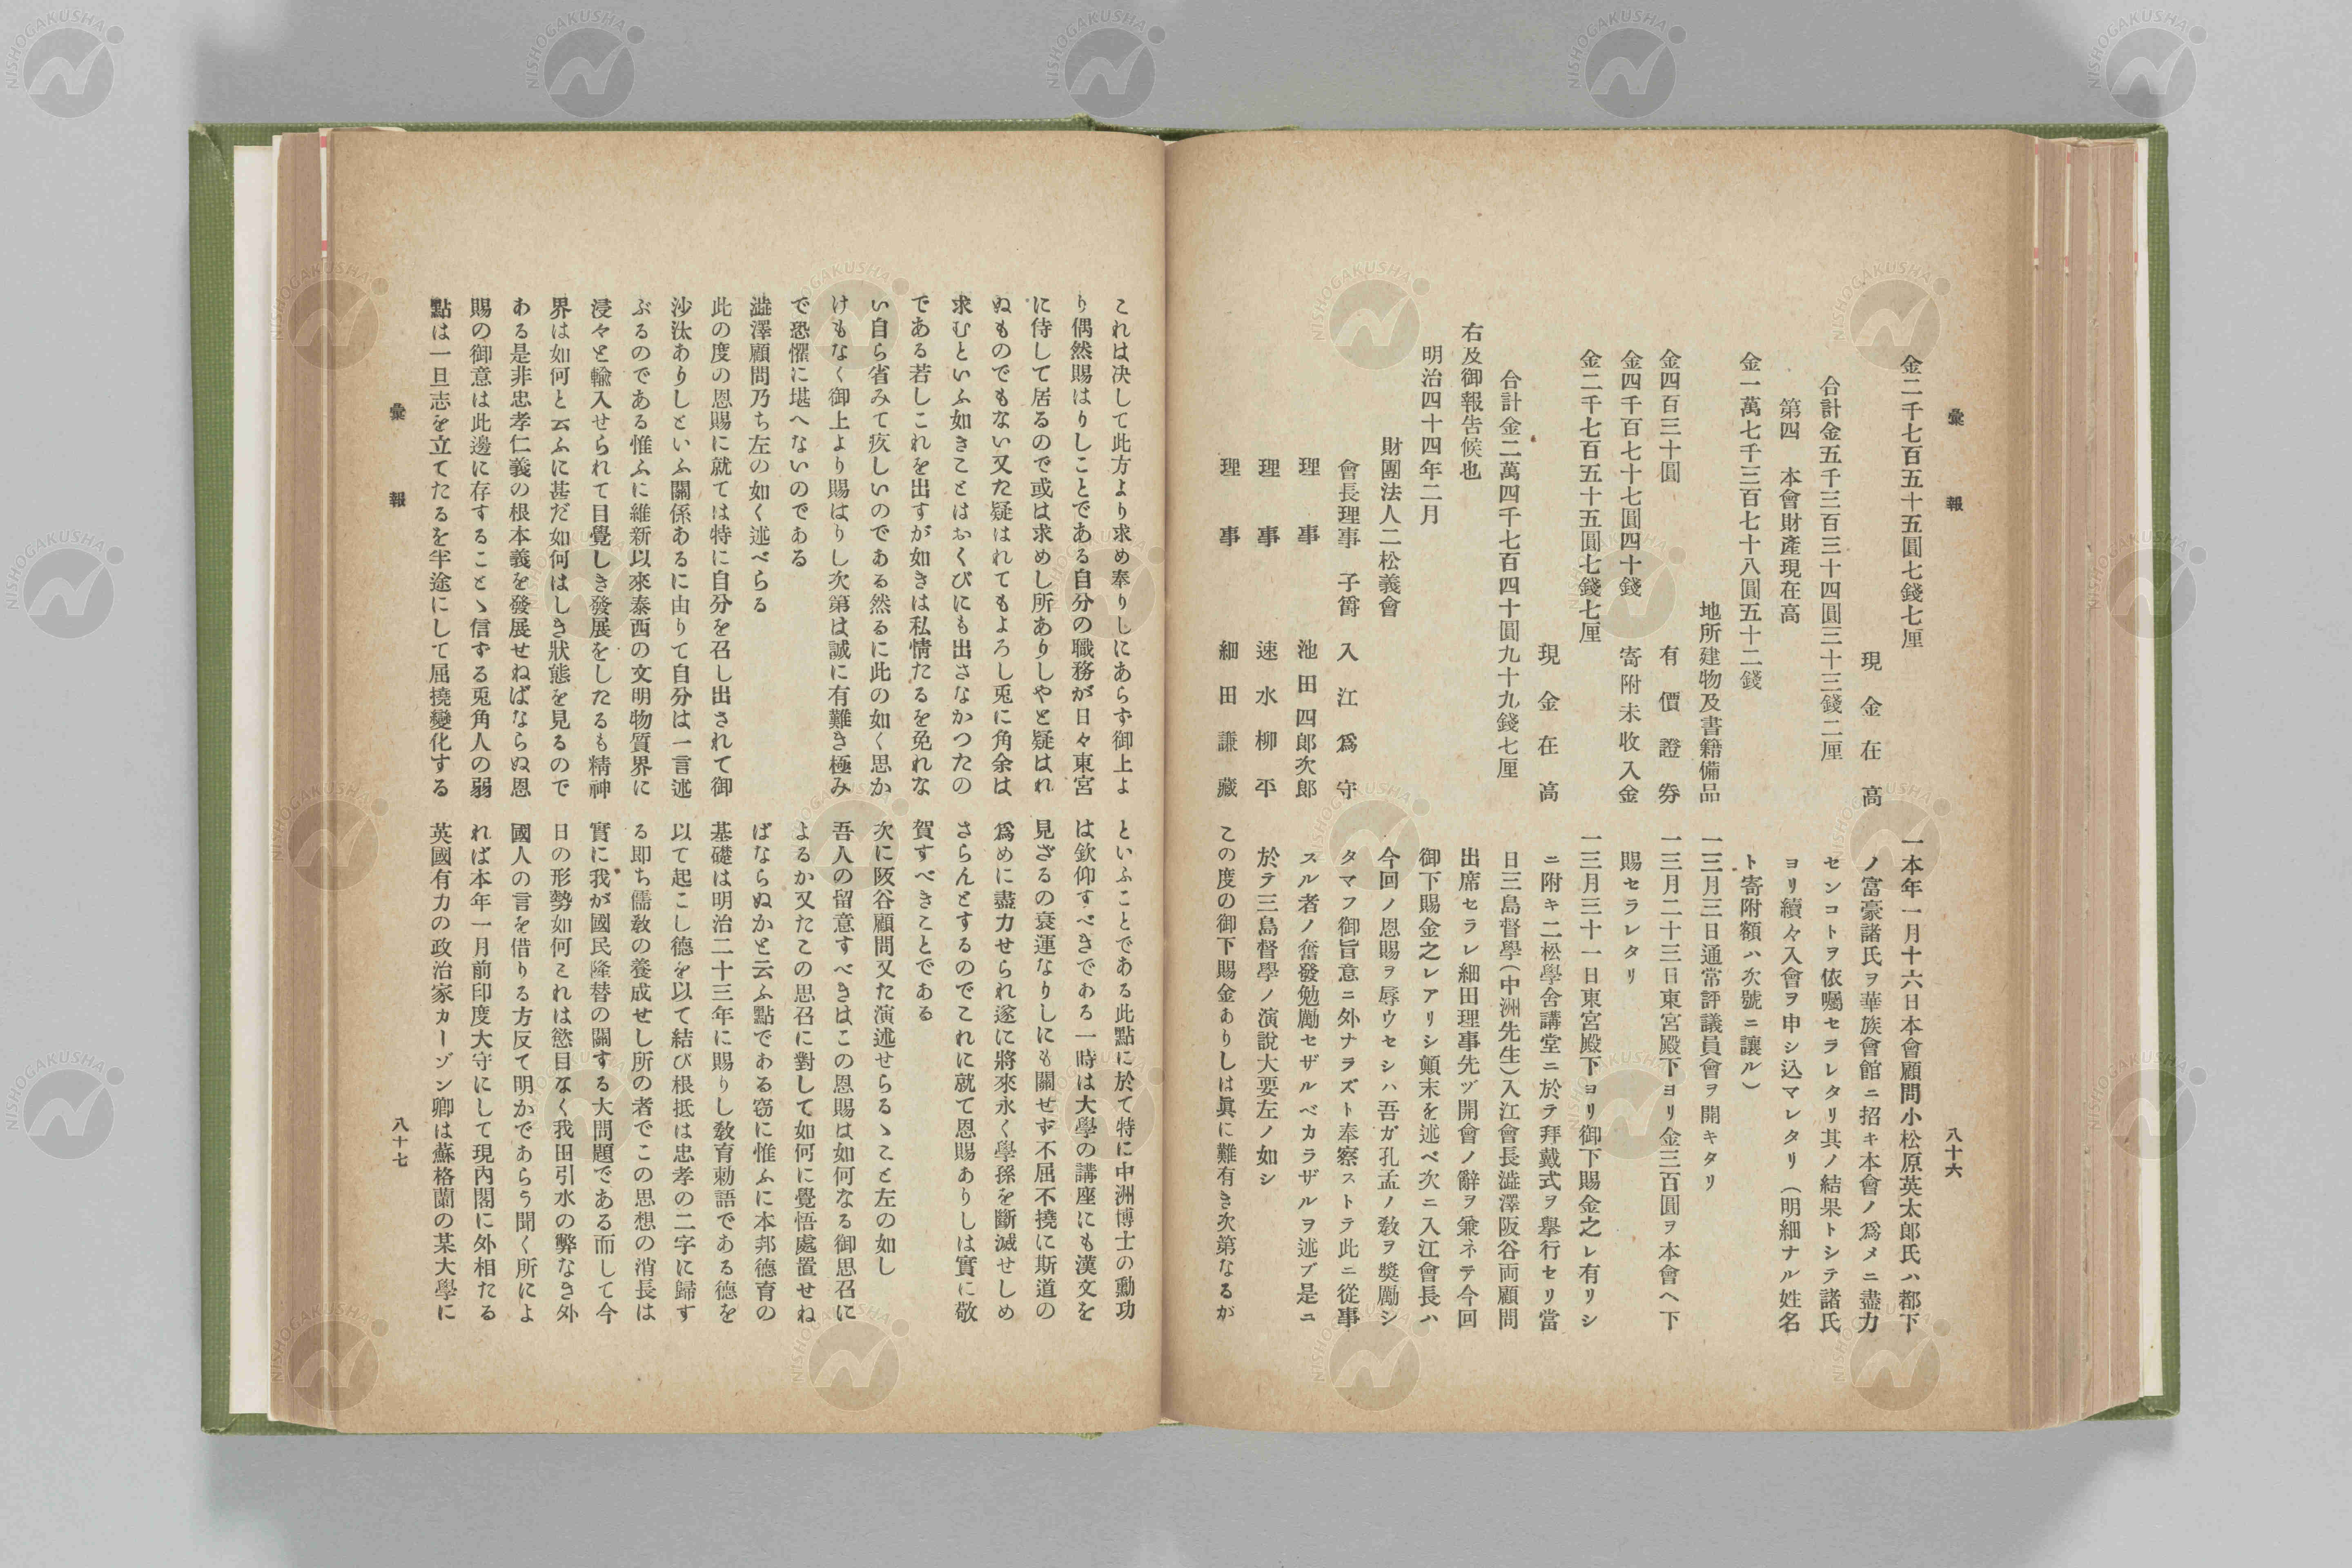 彙報
八十六
金二千七百五十五圓七錢七厘
現金在高
合計金五千三百三十四圓三十三錢二厘
第四 本會財產現在高
金一萬七千三百七十八圓五十二錢
地所建物及書籍備品
金四百三十圓 有價證券
金四千百七十七圓四十錢 寄附未收入金
金二千七百五十五圓七錢七厘
現金在高
合計金二萬四千七百四十圓九十九錢七厘
右及御報告候也
明治四十四年二月
財團法人二松義會
會長理事 子爵 入江爲守
理事 池田四郎次郎
理事 速水柳平
理事 細田謙藏
一本年一月十六日本會顧問小松原英太郎氏ハ都下
ノ富豪諸氏ヲ華族會館ニ招キ本會ノ爲メニ盡力
センコトヲ依囑セラレタリ其ノ結果トシテ諸氏
ヨリ續々入會ヲ申シ込マレタリ（明細ナル姓名
ト寄附額ハ次號ニ讓ル）
一三月三日通常評議員會ヲ開キタリ
一三月二十三日東宮殿下ヨリ金三百圓ヲ本會ヘ下
賜セラレタリ
一三月三十一日東宮殿下ヨリ御下賜金之レ有リシ
ニ附キ二松學舍講堂ニ於テ拜戴式ヲ擧行セリ當
日三島督學（中洲先生）入江會長澁澤阪谷両顧問
出席セラレ細田理事先ヅ開會ノ辭ヲ兼ネテ今回
御下賜金之レアリシ顛末を述ベ次ニ入江會長ハ
今回ノ恩賜ヲ辱ウセシハ吾ガ孔孟ノ敎ヲ奬勵シ
タマフ御旨意ニ外ナラズト奉察ストテ此ニ從事
スル者ノ奮發勉勵セザルベカラザルヲ述ブ是ニ
於テ三島督學ノ演說大要左ノ如シ
この度の御下賜金ありしは眞に難有き次第なるが
これは決して此方より求め奉りしにあらず御上よ
り偶然賜はりしことである自分の職務が日々東宮
に侍して居るので或は求めし所ありしやと疑はれ
ぬものでもない又た疑はれてもよろし兎に角余は
求むといふ如きことはおくびにも出さなかつたの
である若しこれを出すが如きは私情たるを免れな
い自ら省みて疚しいのである然るに此の如く思か
けもなく御上より賜はりし次第は誠に有難き極み
で恐懼に堪へないのである
澁澤顧問乃ち左の如く述べらる
此の度の恩賜に就ては特に自分を召し出されて御
沙汰ありしといふ關係あるに由りて自分は一言述
ぶるのである惟ふに維新以來泰西の文明物質界に
浸々と輸入せられて目覺しき發展をしたるも精神
界は如何と云ふに甚だ如何はしき狀態を見るので
ある是非忠孝仁義の根本義を發展せねばならぬ恩
賜の御意は此邊に存することゝ信ずる兎角人の弱
點は一旦志を立てたるを半途にして屈撓變化する
といふことである此點に於て特に中洲博士の勳功
は欽仰すべきである一時は大學の講座にも漢文を
見ざるの衰運なりしにも關せず不屈不撓に斯道の
爲めに盡力せられ遂に將來永く學孫を斷滅せしめ
さらんとするのでこれに就て恩賜ありしは實に敬
賀すべきことである
次に阪谷顧問又た演述せらるゝこと左の如し
吾人の留意すべきはこの恩賜は如何なる御思召に
よるか又たこの思召に對して如何に覺悟處置せね
ばならぬかと云ふ點である窃に惟ふに本邦德育の
基礎は明治二十三年に賜りし敎育勅語である德を
以て起こし德を以て結び根抵は忠孝の二字に歸す
る即ち儒敎の養成せし所の者でこの思想の消長は
實に我が國民隆替の關する大問題である而して今
日の形勢如何これは慾目なく我田引水の弊なき外
國人の言を借りる方反て明かであらう聞く所によ
れば本年一月前印度大守にして現內閣に外相たる
英國有力の政治家カーゾン卿は蘇格蘭の某大學に
彙報
八十七